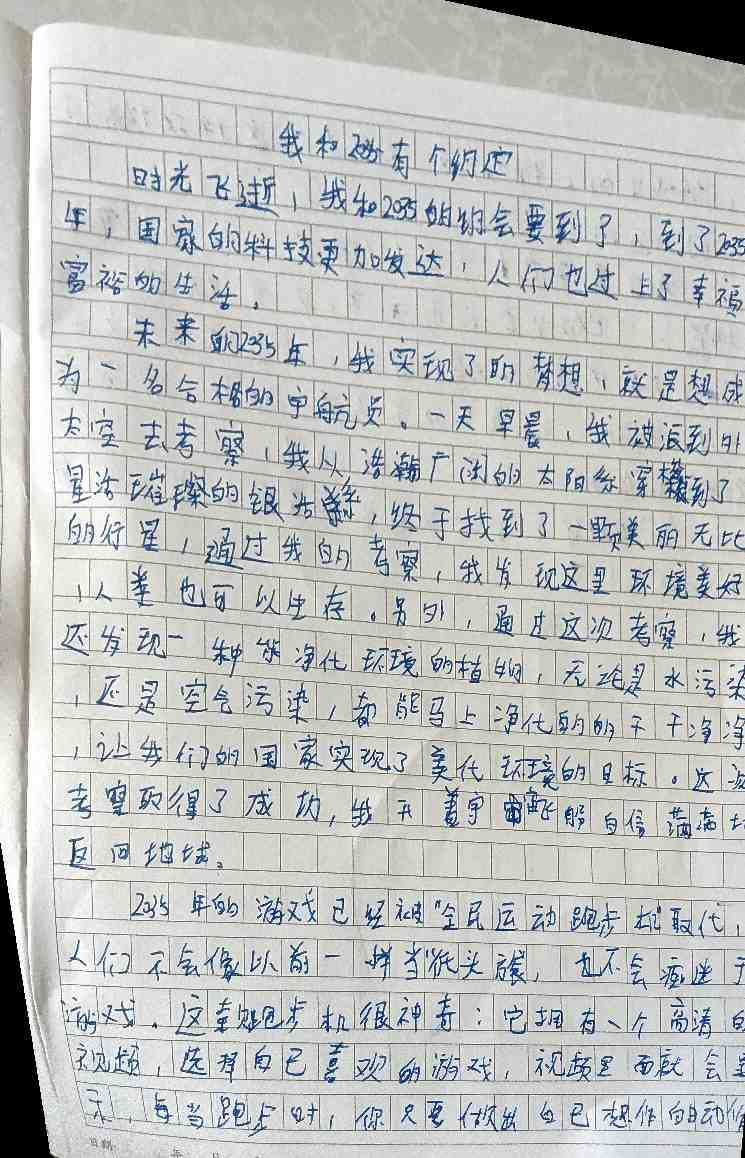 我和2035有个约定
时光飞逝，我和2035的约会要到了，到了2035
年，国家的科技更加发达，人们也过上了幸福
富裕的生活。
未来的2035年，我实现了的梦想，就是想成
为一名合格的宇航员。一天早晨，我被派到外
太空去考察，我从浩瀚广阔的太阳系穿梭到了
星洁璀璨的银河系，终于找到了一颗美丽无比
的行星，通过我的考察，我发现这里环境美好
，人类也可以生存。另外，通过这次考察，我
还发现一种能净化环境的植物，无论是水污染
，还是空气污染，都能马上净化的的干干净净
，让我们的国家实现了美化环境的目标。这次
考察取得了成功，我开着宇宙飞船自信满满地
返回地球。
2035年的游戏已经被“全民运动跑步机取代，
人们不会像以前一样当低头族，也不会痴迷于
游戏。这套跑步机很神奇：它拥有一个高清的
视频，选择自己喜欢的游戏，视频里面就会显
示，每当跑步时，你只要做出自己想作的动作
日期 年 月